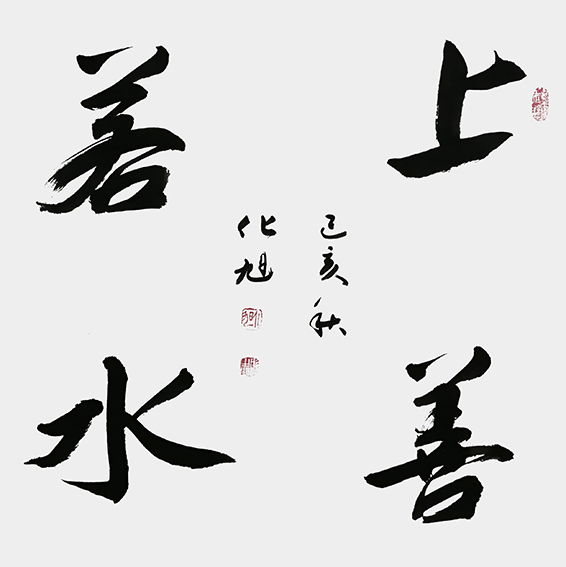 上善
若水
己亥秋
化旭